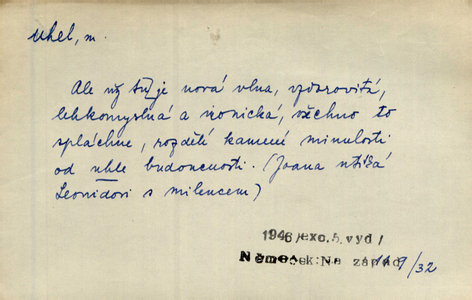 uhel, m.
Ale už tu[ je nová vlna, vzdorovitá,
lehkomyslná a ironická, všechno to
spláchne, rozdělí kamení minulosti
od uhle budoucnosti. (Joana utíká
Leonidovi s milencem)
1946/exc.5.vyd/
Němeček:Na západ 119/32